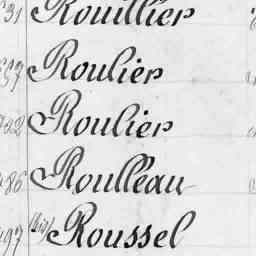 31 Rouillier
Roulier
Roulier
86 Roulleau
497 (bis) Roussel